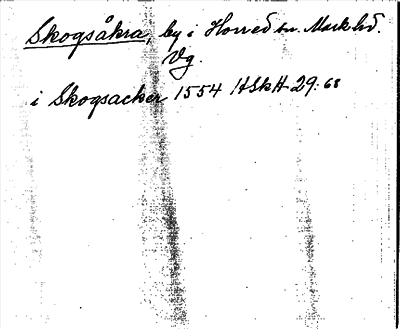 Skogsåkra, by i Horred sn. Mark hd.
Vg.
i Skogsacker 1554 HSkH 29:68